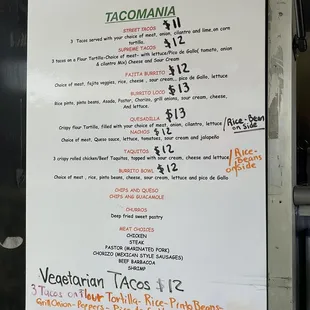 TACOMANIA
STREET TACOS $11
3 Tacos served with your choice of meat, onion, cilantro and lime, on corn
tortilla.
SUPREME TACOS $12
3 tacos on a Flour Tortilla-Choice of meat- with lettuce/Pico de Gallo( tomato, onion
& cilantro Mix) Cheese and Sour Cream
FAJITA BURRITO $12
Choice of meat, fajita veggies, rice, cheese, sour cream, pico de Gallo, lettuce
BURRITO LOCO $13
Rice pinto, pinto beans, Asada, Pastor, Chorizo, grill onions, sour cream, cheese,
And lettuce.
QUESADILLA $13
Crispy flour Tortilla, filled with your choice of meat, onion, cilantro, lettuce /Rice-Bean
on side
NACHOS $12
Choice of meat, Queso sauce, lettuce, tomatoes, sour cream and jalapeño
TAQUITOS $12
3 crispy rolled chicken/Beef Taquitos, topped with sour cream, cheese and lettuce /Rice-
Beans
on side
BURRITO BOWL $12
Choice of meat, rice, pinto beans, cheese, sour cream, lettuce and pico de Gallo
CHIPS AND QUESO
CHIPS AND GUACAMOLE
CHURROS
Deep fried sweet pastry
MEAT CHOICES
CHICKEN
STEAK
PASTOR (MARINATED PORK)
CHORIZO (MEXICAN STYLE SAUSAGES)
BEEF BARBACOA
SHRIMP
Vegetarian TACOS $12
3 Tacos on Flour Tortilla-Rice-Pinto Beans-
Grill Onion-Peppers-